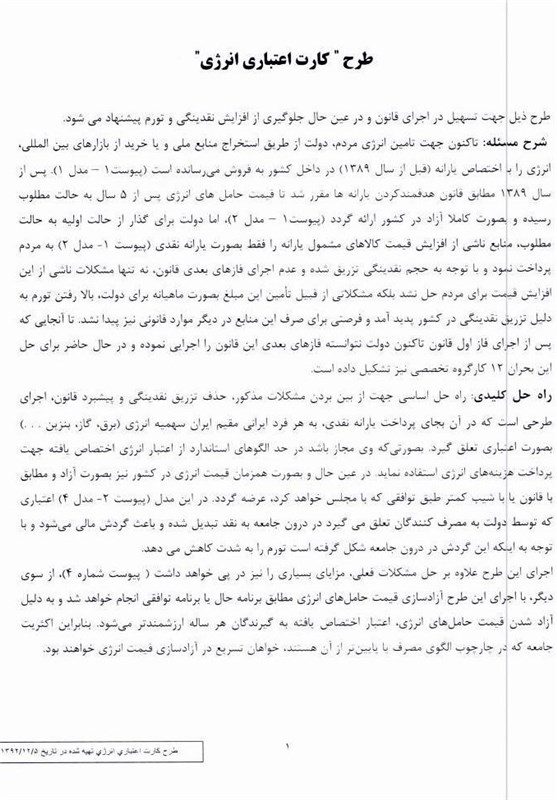 طرح " کارت اعتباری انرژی"
طرح ذیل جهت تسهیل در اجرای قانون و در عین حال جلوگیری از افزایش نقدینگی و تورم پیشنهاد می شود.
شرح مسئله: تاکنون جهت تامین انرژی مردم، دولت از طریق استخراج منابع ملی و یا خرید از بازارهای بین المللی،
انرژی را با اختصاص یارانه (قبل از سال ۱۳۸۹) در داخل کشور به فروش می‌رسانده است (پیوست۱ – مدل ۱). پس از
سال ۱۳۸۹ مطابق قانون هدفمندکردن یارانه ها مقرر شد تا قیمت حامل های انرژی پس از ۵ سال به حالت مطلوب
رسیده و بصورت کاملا آزاد در کشور ارائه گردد (پیوست۱ – مدل ۲)، اما دولت برای گذار از حالت اولیه به حالت
مطلوب، منابع ناشی از افزایش قیمت کالاهای مشمول یارانه را فقط بصورت یارانه نقدی (پیوست ۱- مدل ۲) به مردم
پرداخت نمود و با توجه به حجم نقدینگی تزریق شده و عدم اجرای فازهای بعدی قانون، نه تنها مشکلات ناشی از این
افزایش قیمت برای مردم حل نشد بلکه مشکلاتی از قبیل تأمین این مبلغ بصورت ماهیانه برای دولت، بالا رفتن تورم به
دلیل تزریق نقدینگی در کشور پدید آمد و فرصتی برای صرف این منابع در دیگر موارد قانونی نیز پیدا نشد. تا آنجایی که
پس از اجرای فاز اول قانون تاکنون دولت نتوانسته فازهای بعدی این قانون را اجرایی نموده و در حال حاضر برای حل
این بحران ۱۲ کارگروه تخصصی نیز تشکیل داده است.
راه حل کلیدی: راه حل اساسی جهت از بین بردن مشکلات مذکور، حذف تزریق نقدینگی و پیشبرد قانون، اجرای
طرحی است که در آن بجای پرداخت یارانه نقدی، به هر فرد ایرانی مقیم ایران سهمیه انرژی (برق، گاز، بنزین . . .)
بصورت اعتباری تعلق گیرد. بصورتی‌که وی مجاز باشد در حد الگوهای استاندارد از اعتبار انرژی اختصاص یافته جهت
پرداخت هزینه‌های انرژی استفاده نماید. در عین حال و بصورت همزمان قیمت انرژی در کشور نیز بصورت آزاد و مطابق
با قانون یا با شیب کمتر طبق توافقی که با مجلس خواهد کرد، عرضه گردد. در این مدل (پیوست ۲- مدل ۴) اعتباری
که توسط دولت به مصرف کنندگان تعلق می گیرد در درون جامعه به نقد تبدیل شده و باعث گردش مالی می‌شود و با
توجه به اینکه این گردش در درون جامعه شکل گرفته است تورم را به شدت کاهش می دهد.
اجرای این طرح علاوه بر حل مشکلات فعلی، مزایای بسیاری را نیز در پی خواهد داشت ( پیوست شماره ۴)، از سوی
دیگر، با اجرای این طرح آزادسازی قیمت حامل‌های انرژی مطابق برنامه حال یا برنامه توافقی انجام خواهد شد و به دلیل
آزاد شدن قیمت حامل‌های انرژی، اعتبار اختصاص یافته به گیرندگان هر ساله ارزشمندتر می‌شود. بنابراین اکثریت
جامعه که در چارچوب الگوی مصرف یا پایین‌تر از آن هستند، خواهان تسریع در آزادسازی قیمت انرژی خواهند بود.
۱
طرح کارت اعتباري انرژي تهیه شده در تاریخ ۱۳۹۲/۱۲/۵